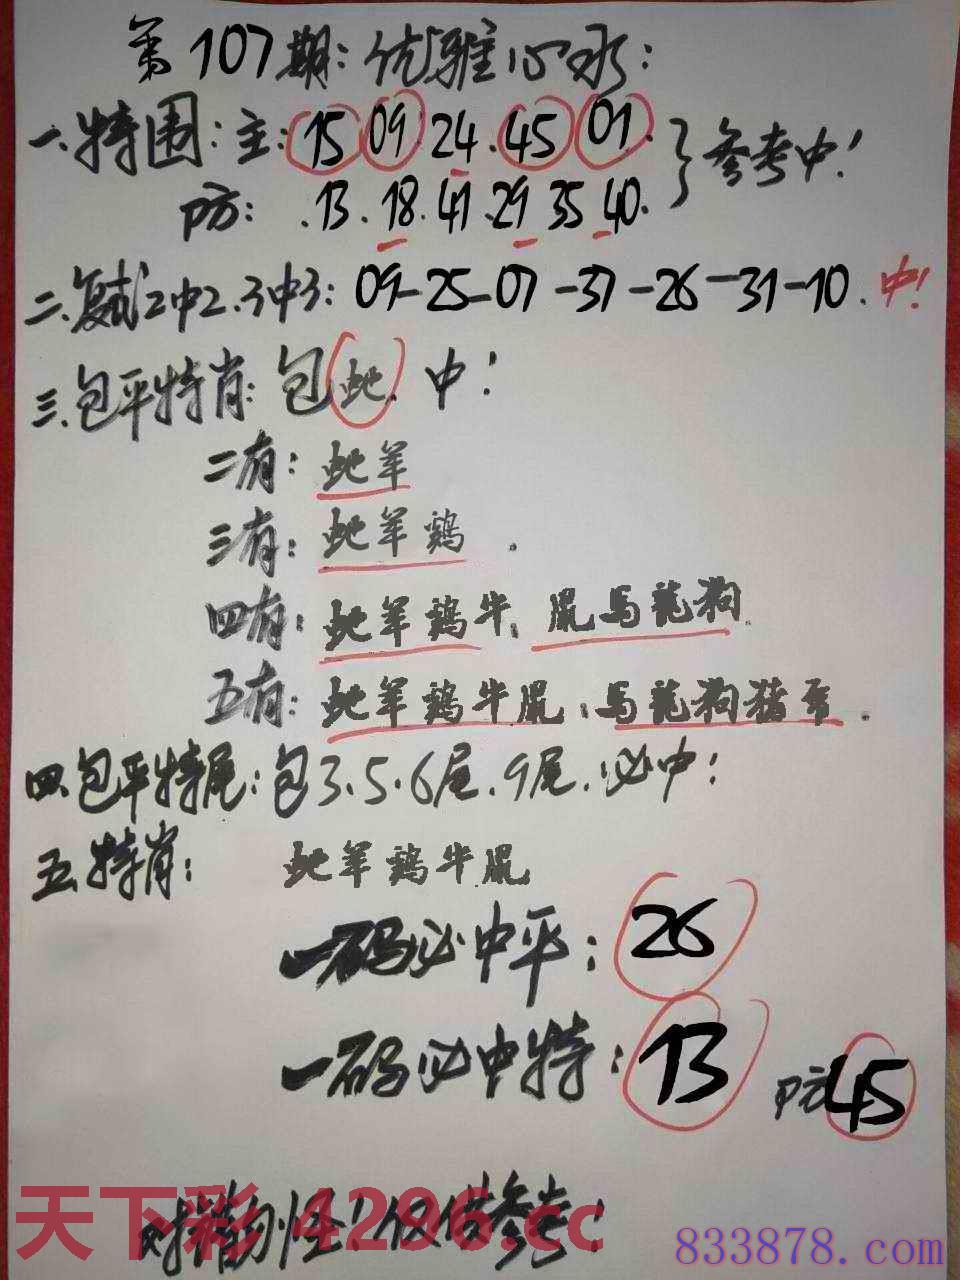 第107期:优雅心水:
一.特围:主:15 09 24.45 01.
防: .13.18.41.29 35 40.
参考中!
二.复式2中2.3中3: 09-25-07-37-26-31-10.中!
三.包平特肖:包蛇.中!
二有:蛇羊
三有:蛇羊鷄.
四有:蛇羊鷄牛、鼠马龍狗.
五有:蛇羊鷄牛鼠;马龍狗猪
四.包平特尾:包3.5.6尾.9尾.必中!
五.特肖: 蛇羊鷄牛鼠
一码必中平: 26
一码必中特: 13 防45
错勿怪!仅供参考!
天下彩 4296.cc
833878.com